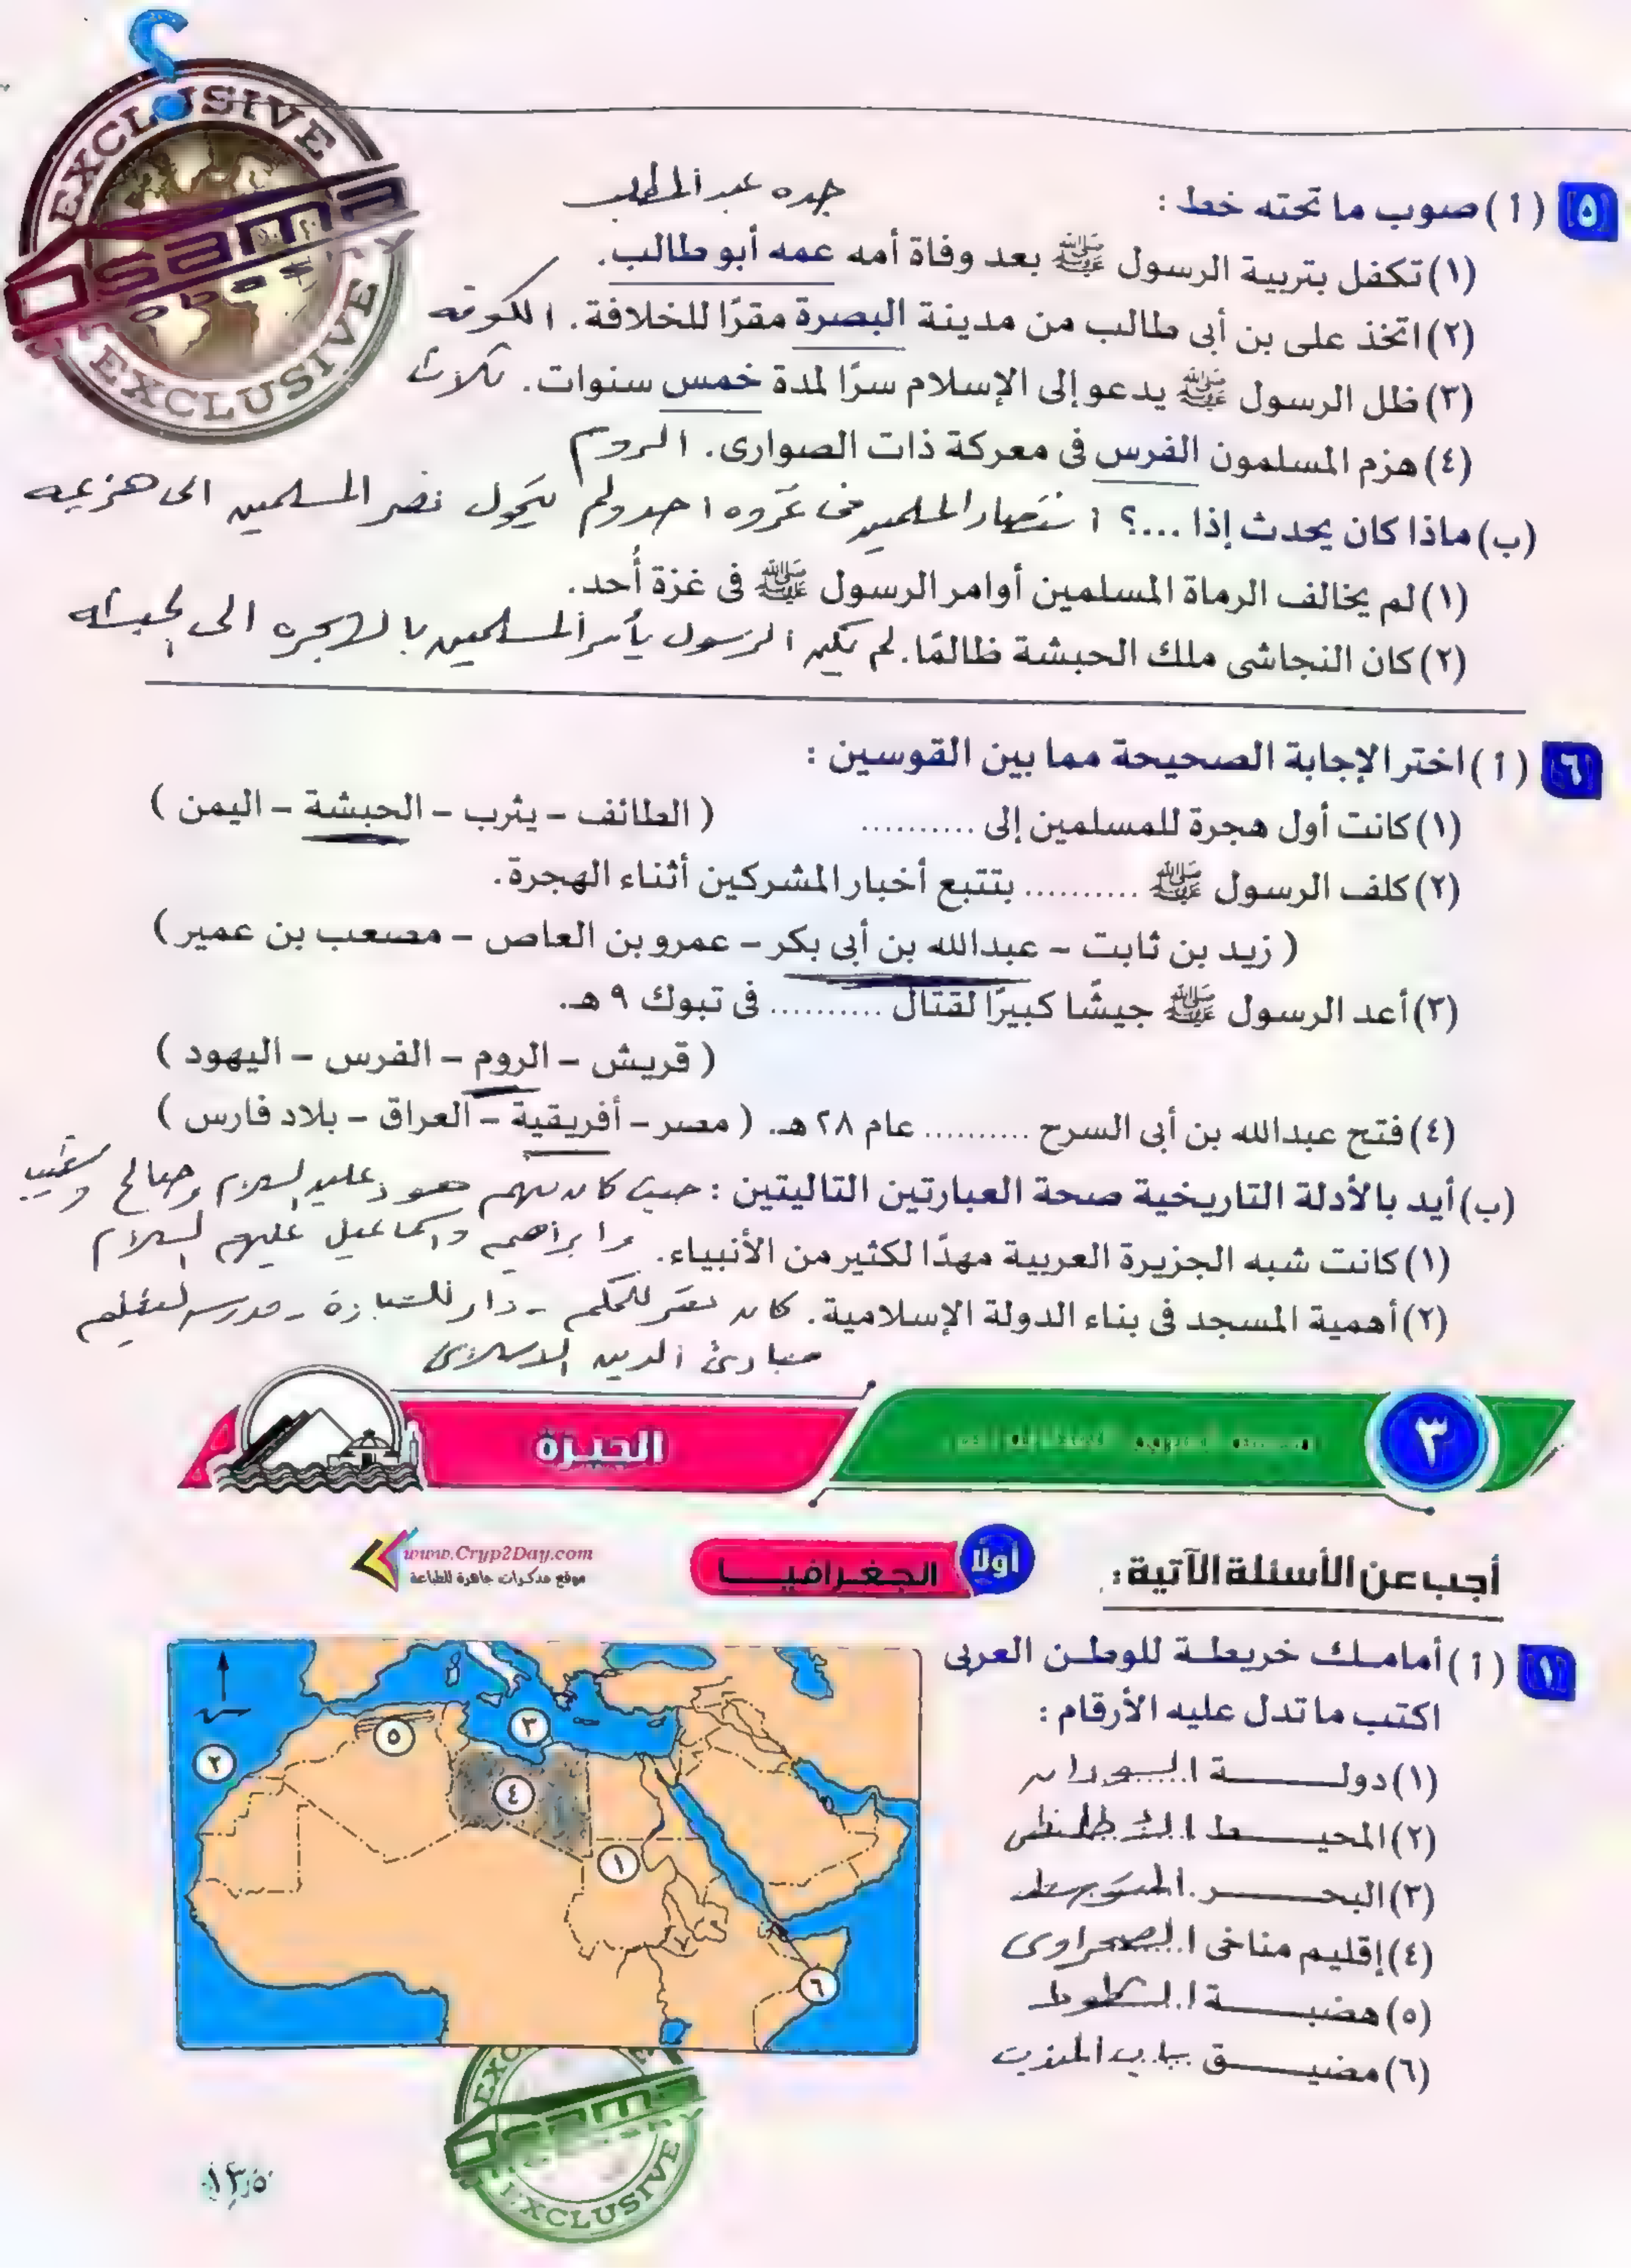 EXCLUSIVE
Osama
EXCLUSIVE
٥ (أ) صوب ما تحته خط :
جده عبد المطلب
(١) تكفل بتربية الرسول ﷺ بعد وفاة أمه عمه أبو طالب.
(٢) اتخذ على بن أبى طالب من مدينة البصرة مقرًا للخلافة. الكوفه
(٣) ظل الرسول ﷺ يدعو إلى الإسلام سرًا لمدة خمس سنوات. ثلاث
(٤) هزم المسلمون الفرس فى معركة ذات الصوارى. الروم
(ب) ماذا كان يحدث إذا ...؟ انتصار المسلمين فى غزوه احد ولم يتحول نصر المسلمين الى هزيمه
(١) لم يخالف الرماة المسلمين أوامر الرسول ﷺ فى غزة أُحد.
(٢) كان النجاشى ملك الحبشة ظالمًا. لم يكن الرسول يأمر المسلمين بالهجره الى الحبشه
٦ (أ) اختر الإجابة الصحيحة مما بين القوسين :
(١) كانت أول هجرة للمسلمين إلى .......... ( الطائف – يثرب – الحبشة – اليمن )
(٢) كلف الرسول ﷺ .......... بتتبع أخبار المشركين أثناء الهجرة.
( زيد بن ثابت – عبدالله بن أبى بكر – عمرو بن العاص – مصعب بن عمير )
(٣) أعد الرسول ﷺ جيشًا كبيرًا لقتال .......... فى تبوك ٩ هـ.
( قريش – الروم – الفرس – اليهود )
(٤) فتح عبدالله بن أبى السرح .......... عام ٢٨ هـ. ( مصر – أفريقية – العراق – بلاد فارس )
(ب) أيد بالأدلة التاريخية صحة العبارتين التاليتين : حيث كان منهم هود عليه السلام وصالح وشعيب
وابراهيم واسماعيل عليهم السلام
(١) كانت شبه الجزيرة العربية مهدًا لكثير من الأنبياء.
(٢) أهمية المسجد فى بناء الدولة الإسلامية. كان مقر للحكم - دار للعبادة - مدرسه لتعليم
مبادئ الدين الاسلامى
٣
الجيزة
أجب عن الأسئلة الآتية :
أولًا الجغرافيا
www.Cryp2Day.com
موقع مذكرات جاهزة للطباعة
١ (أ) أمامك خريطة للوطن العربى
اكتب ما تدل عليه الأرقام :
(١) دولة السودان
(٢) المحيط الاطلنطى
(٣) البحر المتوسط
(٤) إقليم مناخى الصحراوى
(٥) هضبة الشطوط
(٦) مضيق باب المندب
٥
٣
٢
٤
١
٦
Osama
EXCLUSIVE
١٣٥